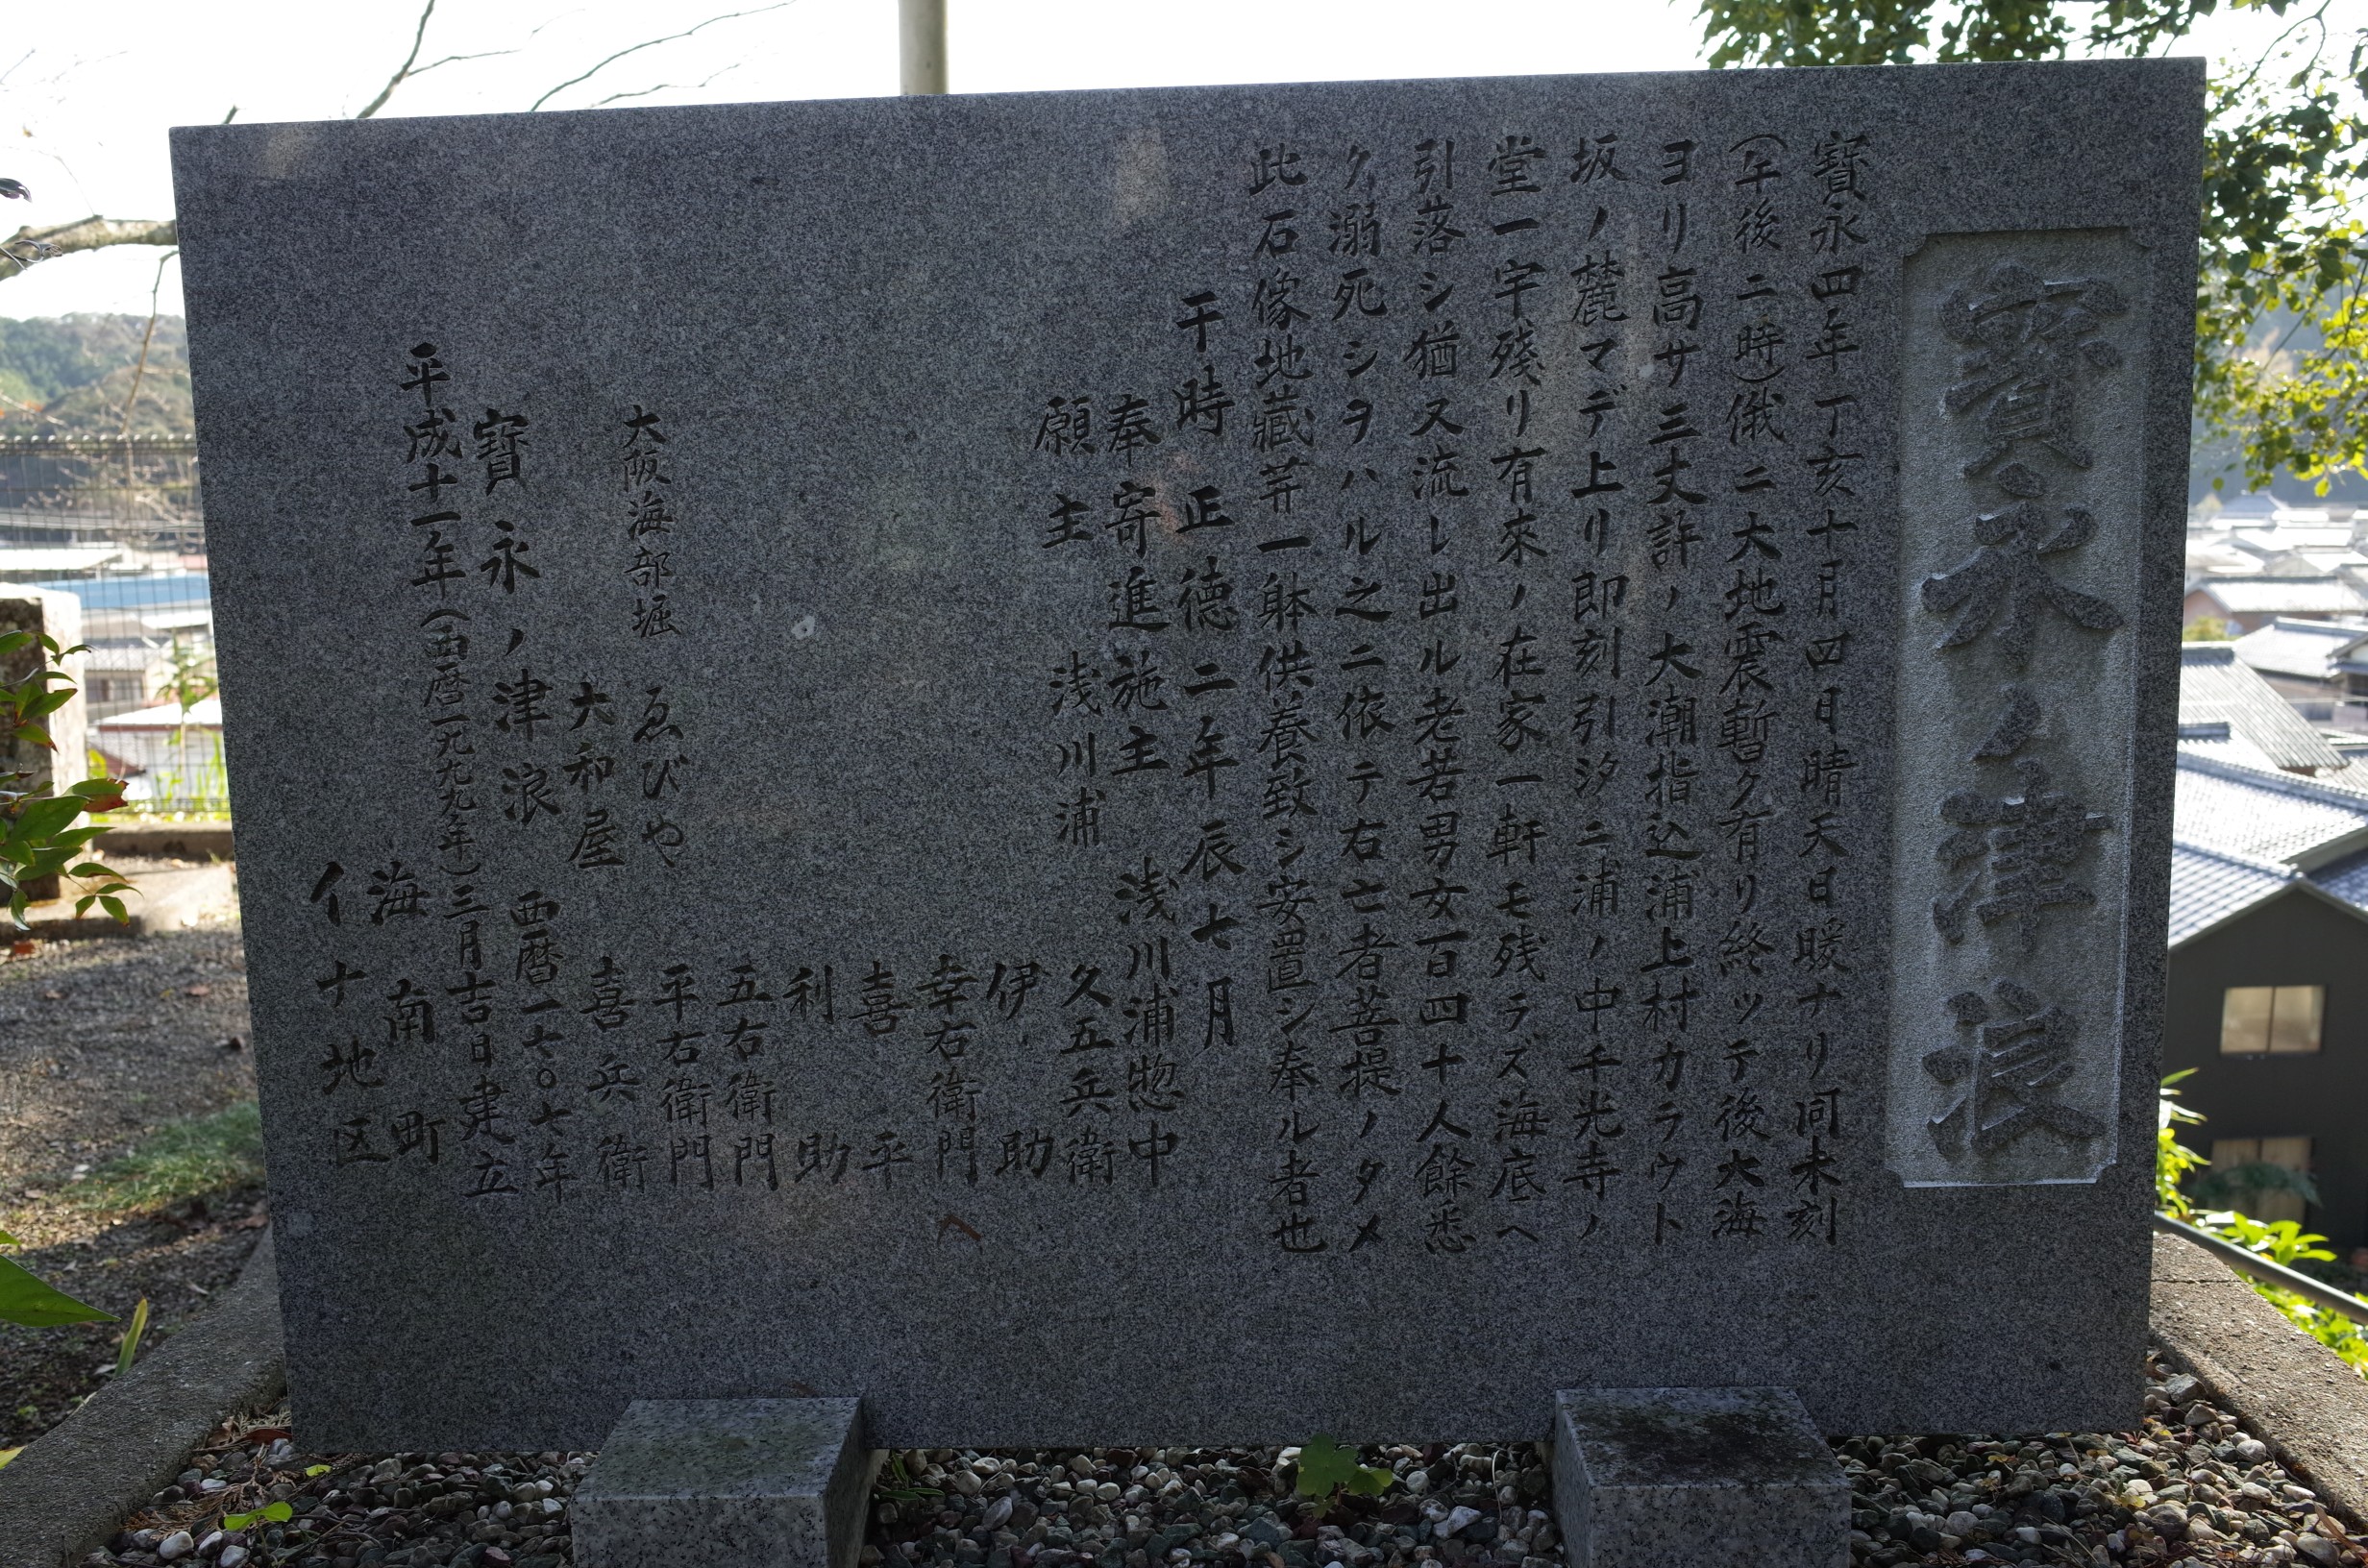 寳永ノ津浪
寳永四年丁亥十月四日晴天日暖ナリ同未刻
(午後二時)俄ニ大地震暫ク有リ終ッテ後大海
ヨリ高サ三丈許ノ大潮指込浦上村カラウト
坂ノ麓マデ上リ即刻引汐ニ浦ノ中千光寺ノ
堂一宇殘リ有來ノ在家一軒モ残ラズ海底ヘ
引落シ猶又流レ出ル老若男女百四十人餘悉
ク溺死シヲハル之ニ依テ右亡者菩提ノタメ
此石像地藏菩一躰供養致シ安置シ奉ル者也
干時正德二年辰七月
奉寄進施主 浅川浦惣中
願主 浅川浦 久五兵衛
伊助
幸右衛門
喜平
利助
五右衛門
平右衛門
大阪海部堀 ゑびや
大和屋 喜兵衛
寳永ノ津浪 西暦一七〇七年
平成十一年(西暦一九九九年)三月吉日建立
海南町
イナ地区